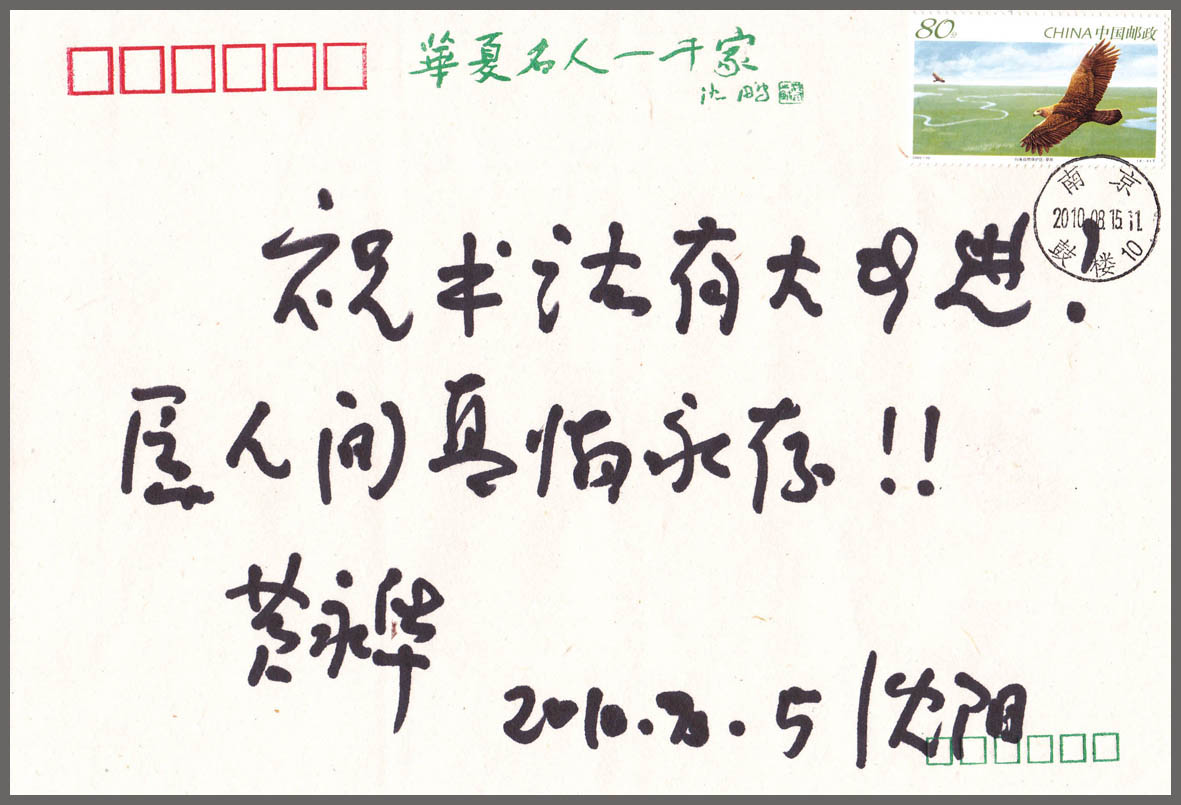 華夏名人一千家
沈鹏
80分
CHINA 中国邮政
南京
2010.08.15.11
鼓楼 10
祝书法有大步进!
人间真情永存!!
黄永华
2010.8.5 沈阳